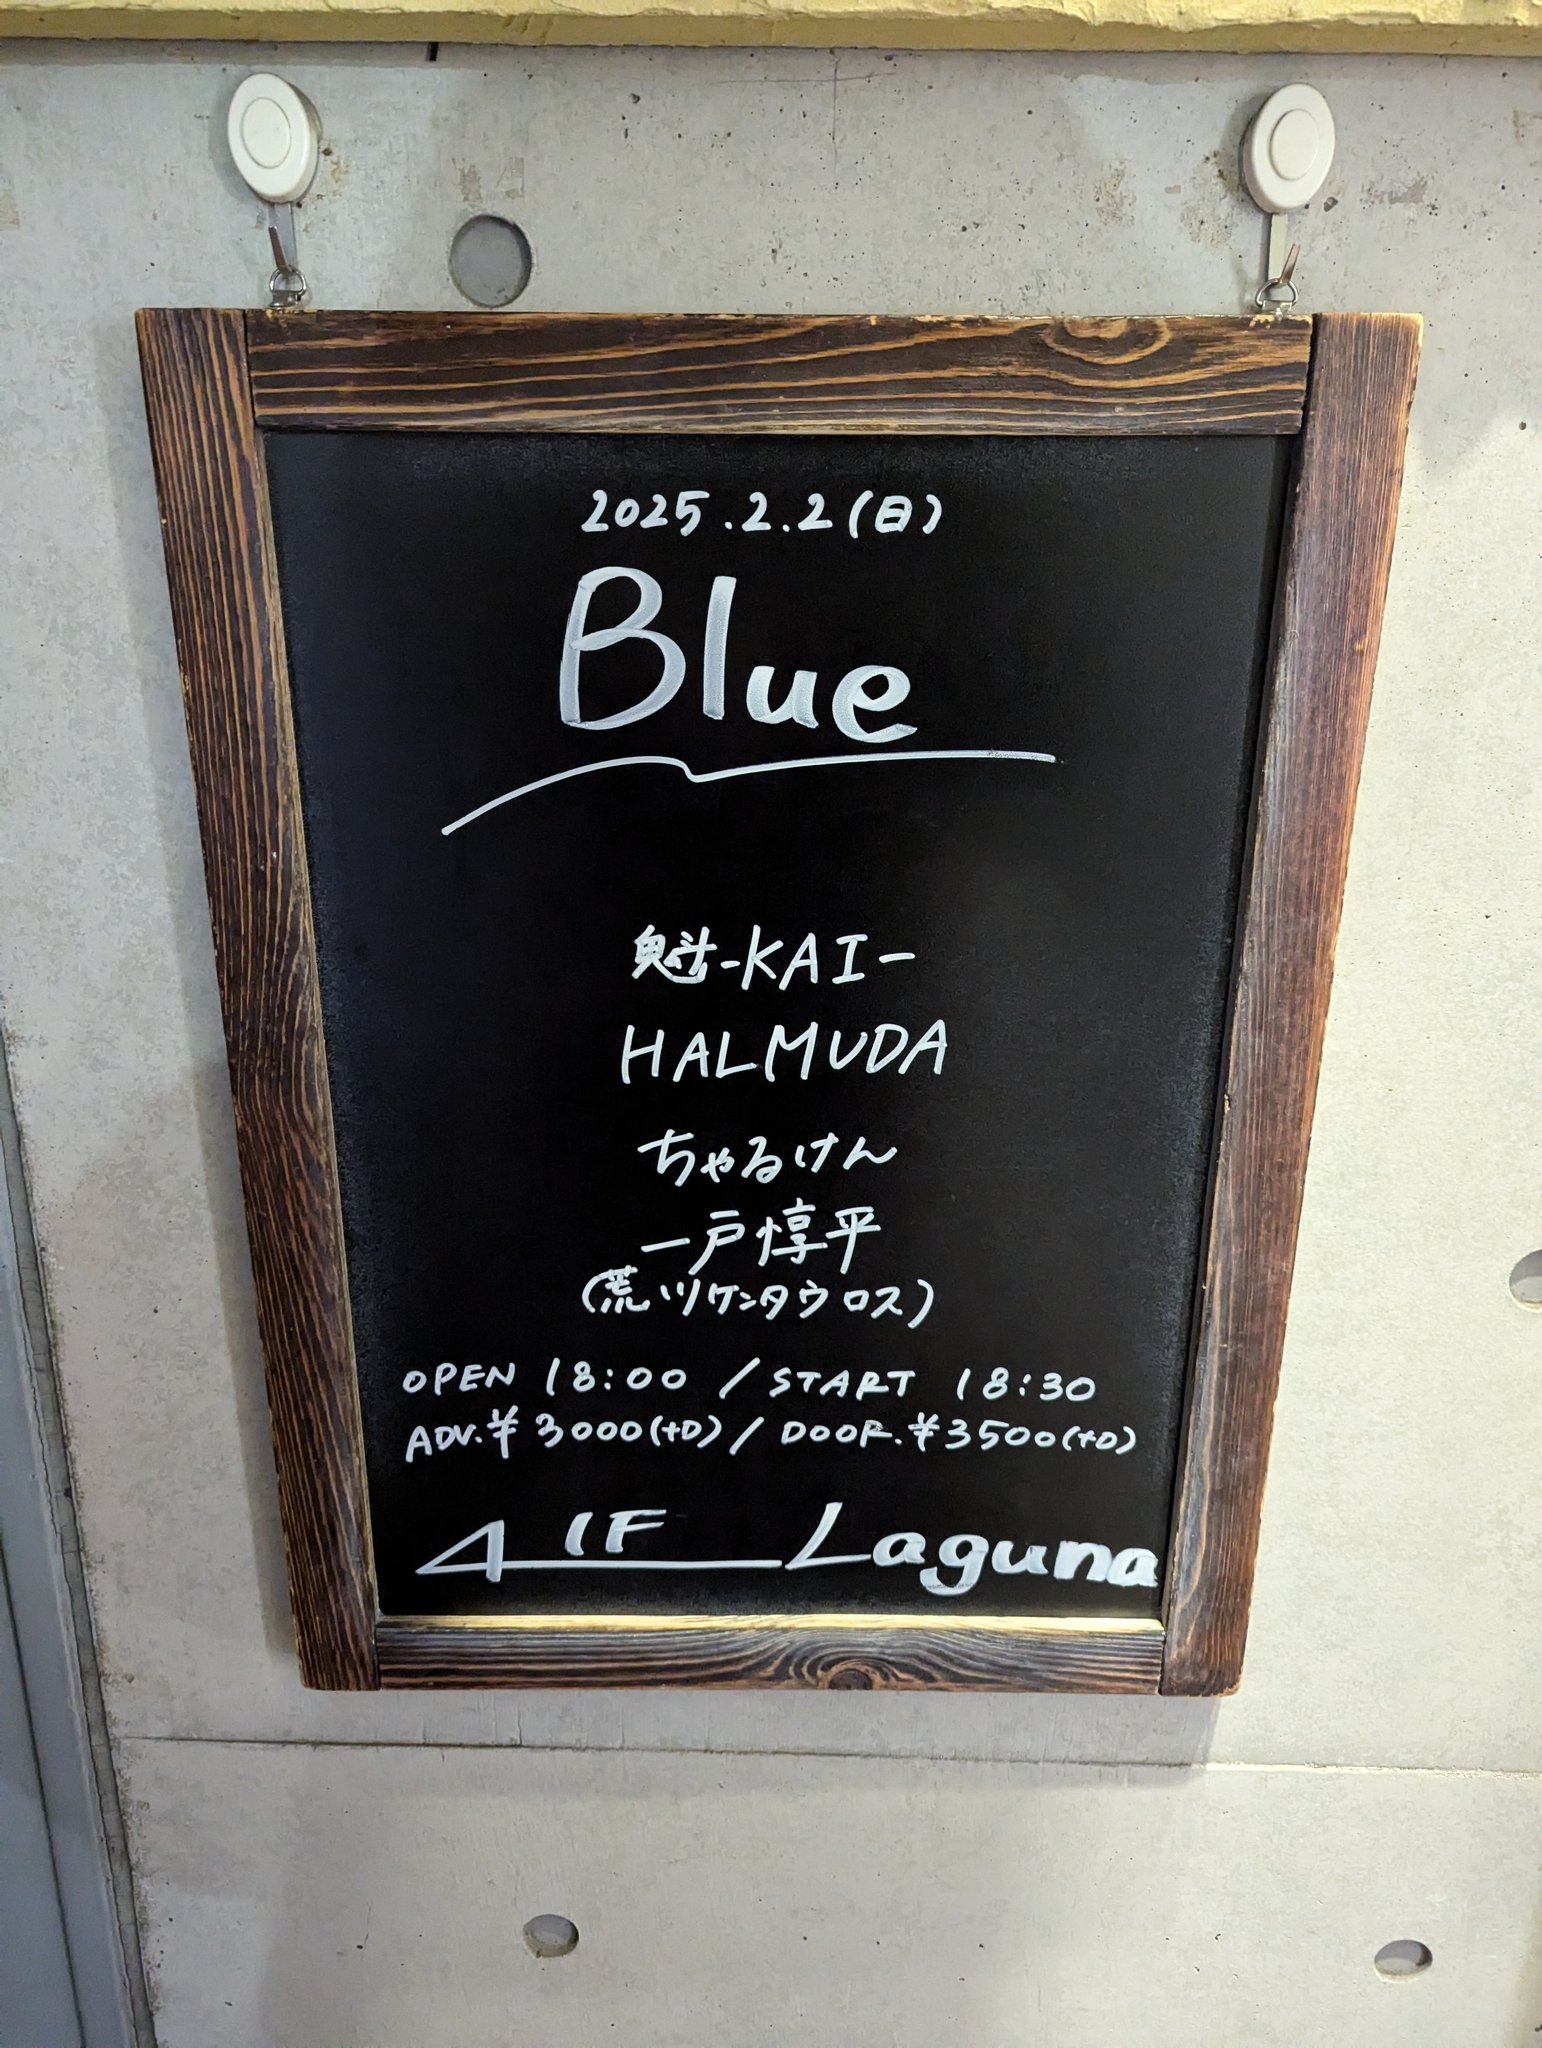 2025.2.2(日)
Blue
魁-KAI-
HALMUDA
ちゃるけん
一戸惇平
(荒川ケンタウロス)
OPEN 18:00 / START 18:30
ADV.¥3000(+D) / DOOR.¥3500(+D)
1F Laguna